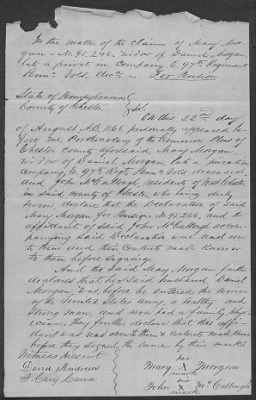 In the matter of the claim of Mary Mor-
gan - No. 95,246 - widow of Daniel Morgan
late a private in Company E. 97th Regiment
Penna Vols. decd - For Pension
State of Pennsylvania
County of Chester } ss.
On this 22nd day
of August A.D. 1865, personally appeared be-
fore me, Prothonotary of the Common Pleas of
Chester County aforesaid, Mary Morgan
widow of Daniel Morgan, late a private in
Company E 97th Regt Penna Vols. deceased,
and John McCullough, resident of West Chester
in said County of Chester, who being duly
sworn declare that the Declaration of said
Mary Morgan for Pension No. 95,246, and the
affidavit of said John McCullough accom-
panying said Declaration was read over
to them and their contents made known
to them before signing.
And the said Mary Morgan further
declares that her said husband, Daniel
Morgan was before he entered the service
of the United States army, a healthy and
strong man, and never had a family phys-
ician. They further declare that this affi-
davit was read over to them and contents made known
before they signed the same by their marks.
Witnesses present
her
David Andrews Mary X Morgan
mark
his
John X McCullough
mark